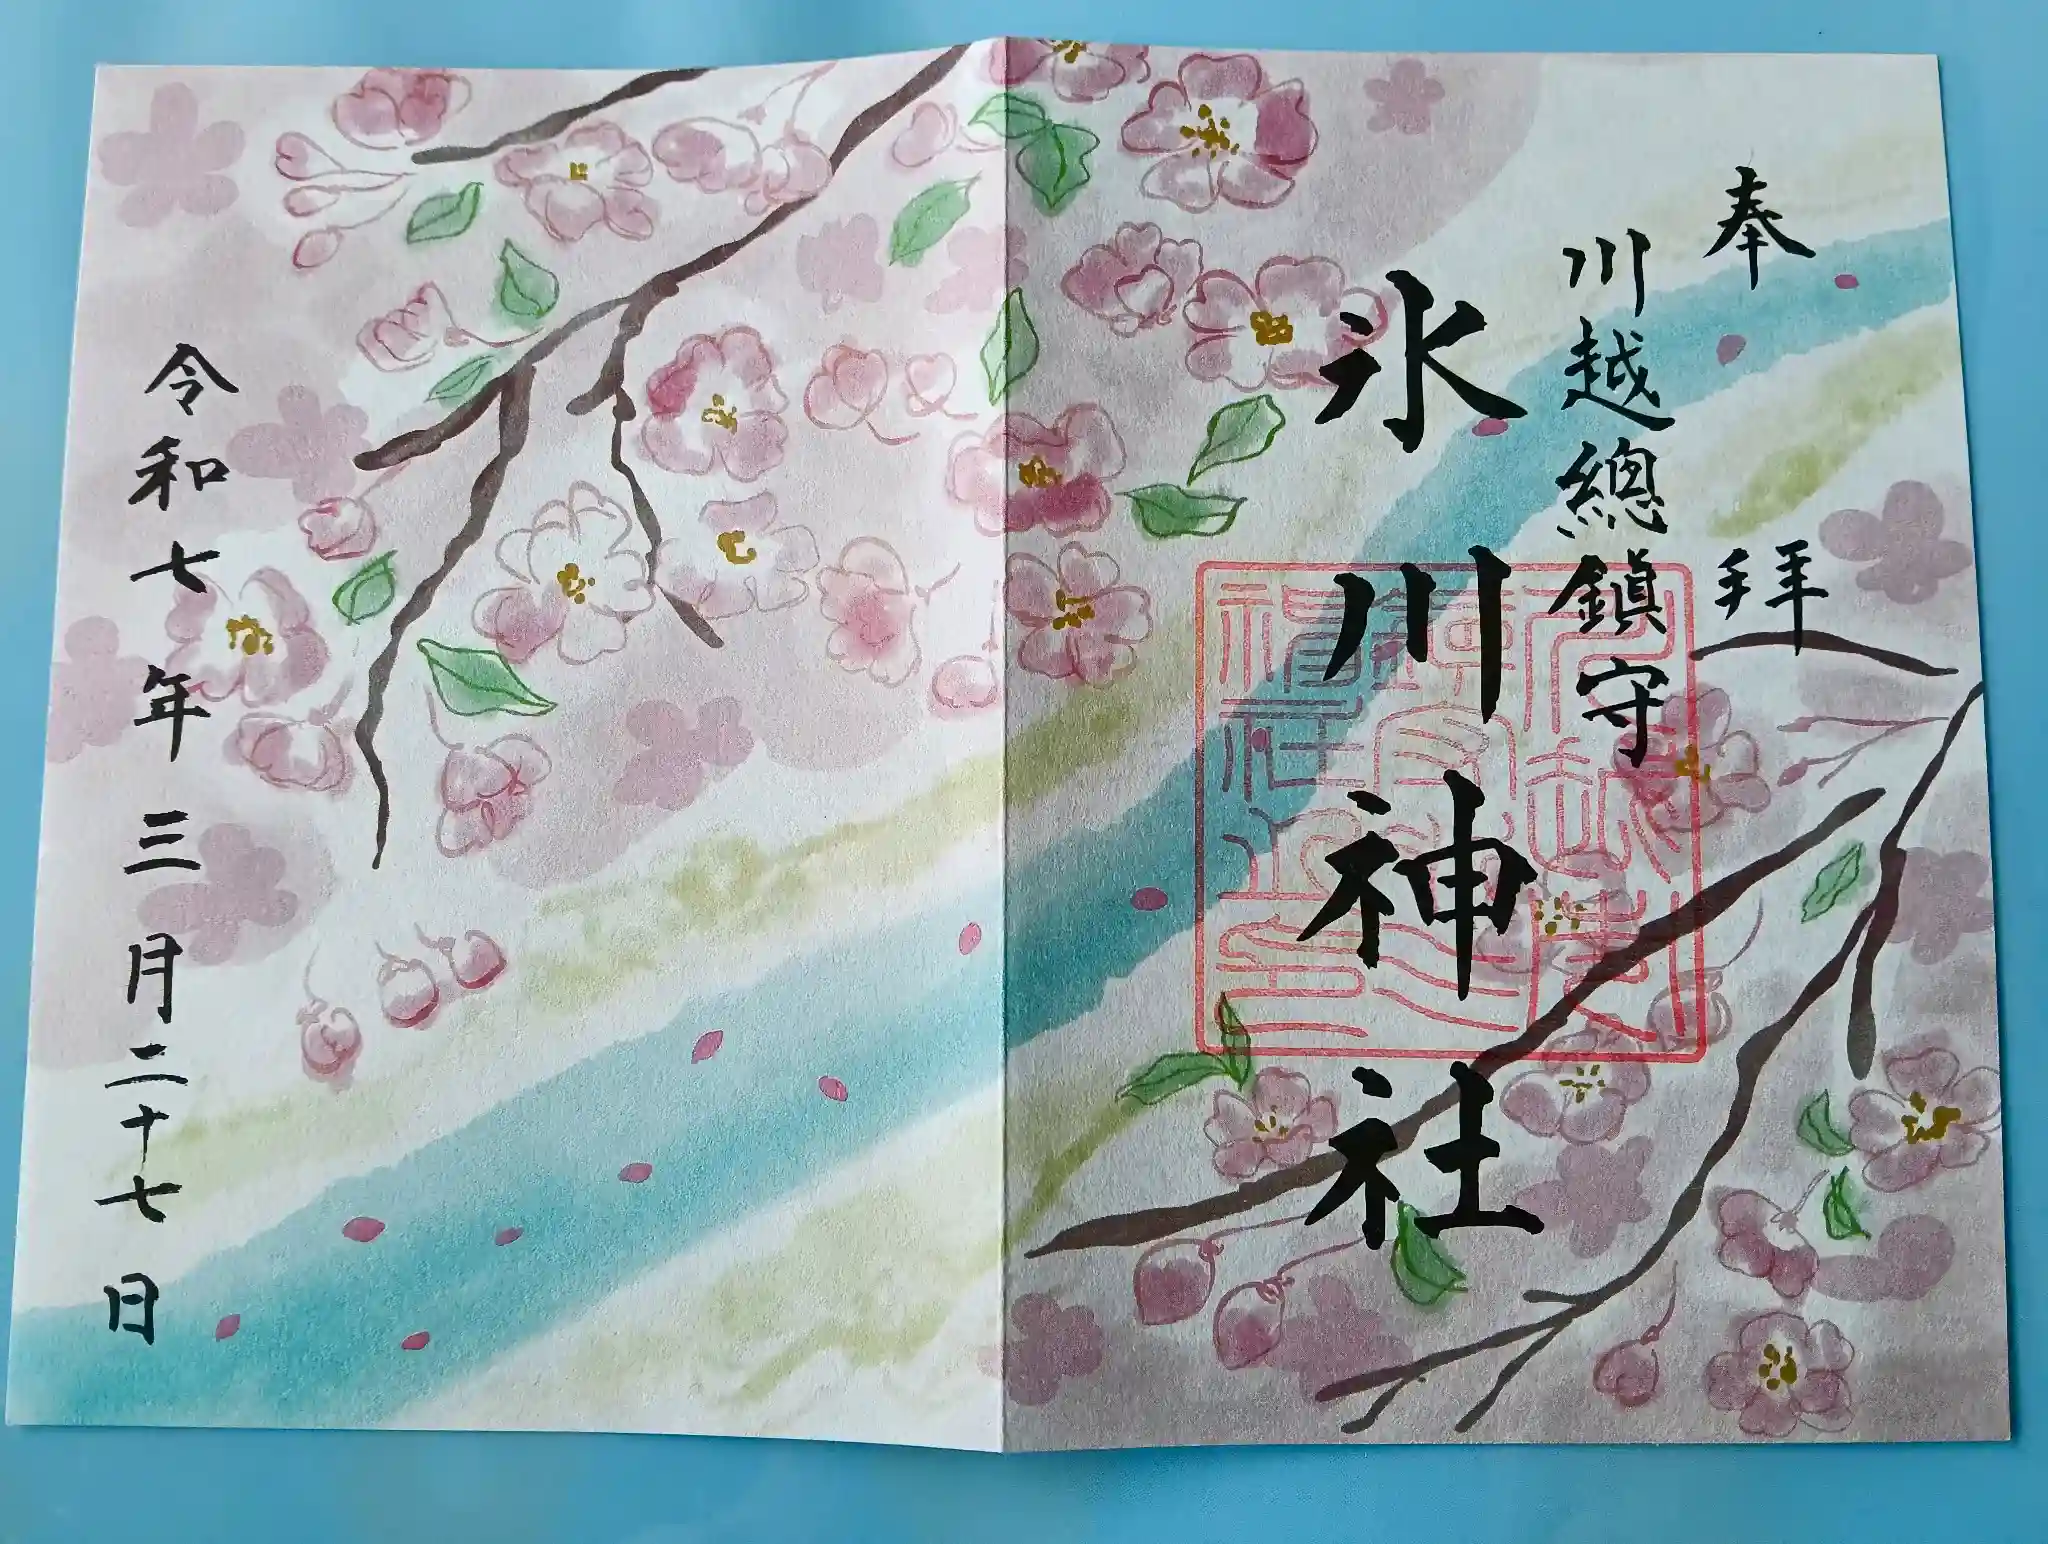 奉拝
川越總鎮守
氷川神社
令和七年三月二十七日